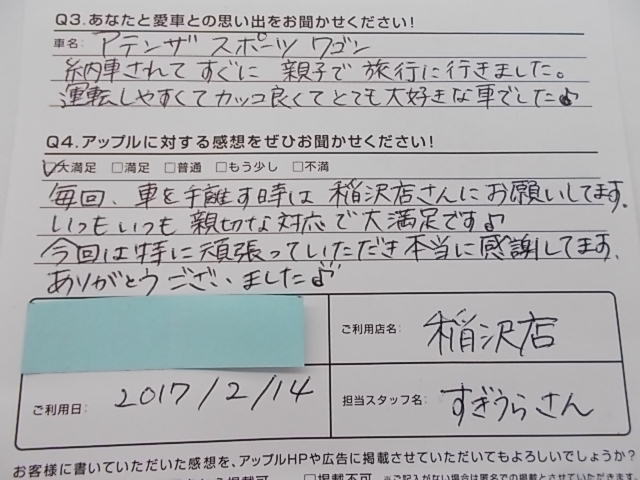 Q3.あなたと愛車との思い出をお聞かせください!
車名: アテンザ スポーツ ワゴン
納車されてすぐに 親子で 旅行に行きました。
運転しやすくてカッコ良くてとても大好きな車でした♪
Q4.アップルに対する感想をぜひお聞かせください!
☑大満足 □満足 □普通 □もう少し □不満
毎回、車を手離す時は 稲沢店さんにお願いしてます。
いつもいつも 親切な対応で大満足です♪
今回は特に頑張っていただき本当に感謝してます。
ありがとうございました♪
ご利用店名: 稲沢店
ご利用日: 2017/2/14
担当スタッフ名: すぎうらさん
お客様に書いていただいた感想を、アップルHPや広告に掲載させていただいてもよろしいでしょうか?
□掲載不可 ※ご記入がない場合は匿名での掲載とさせていただきます。